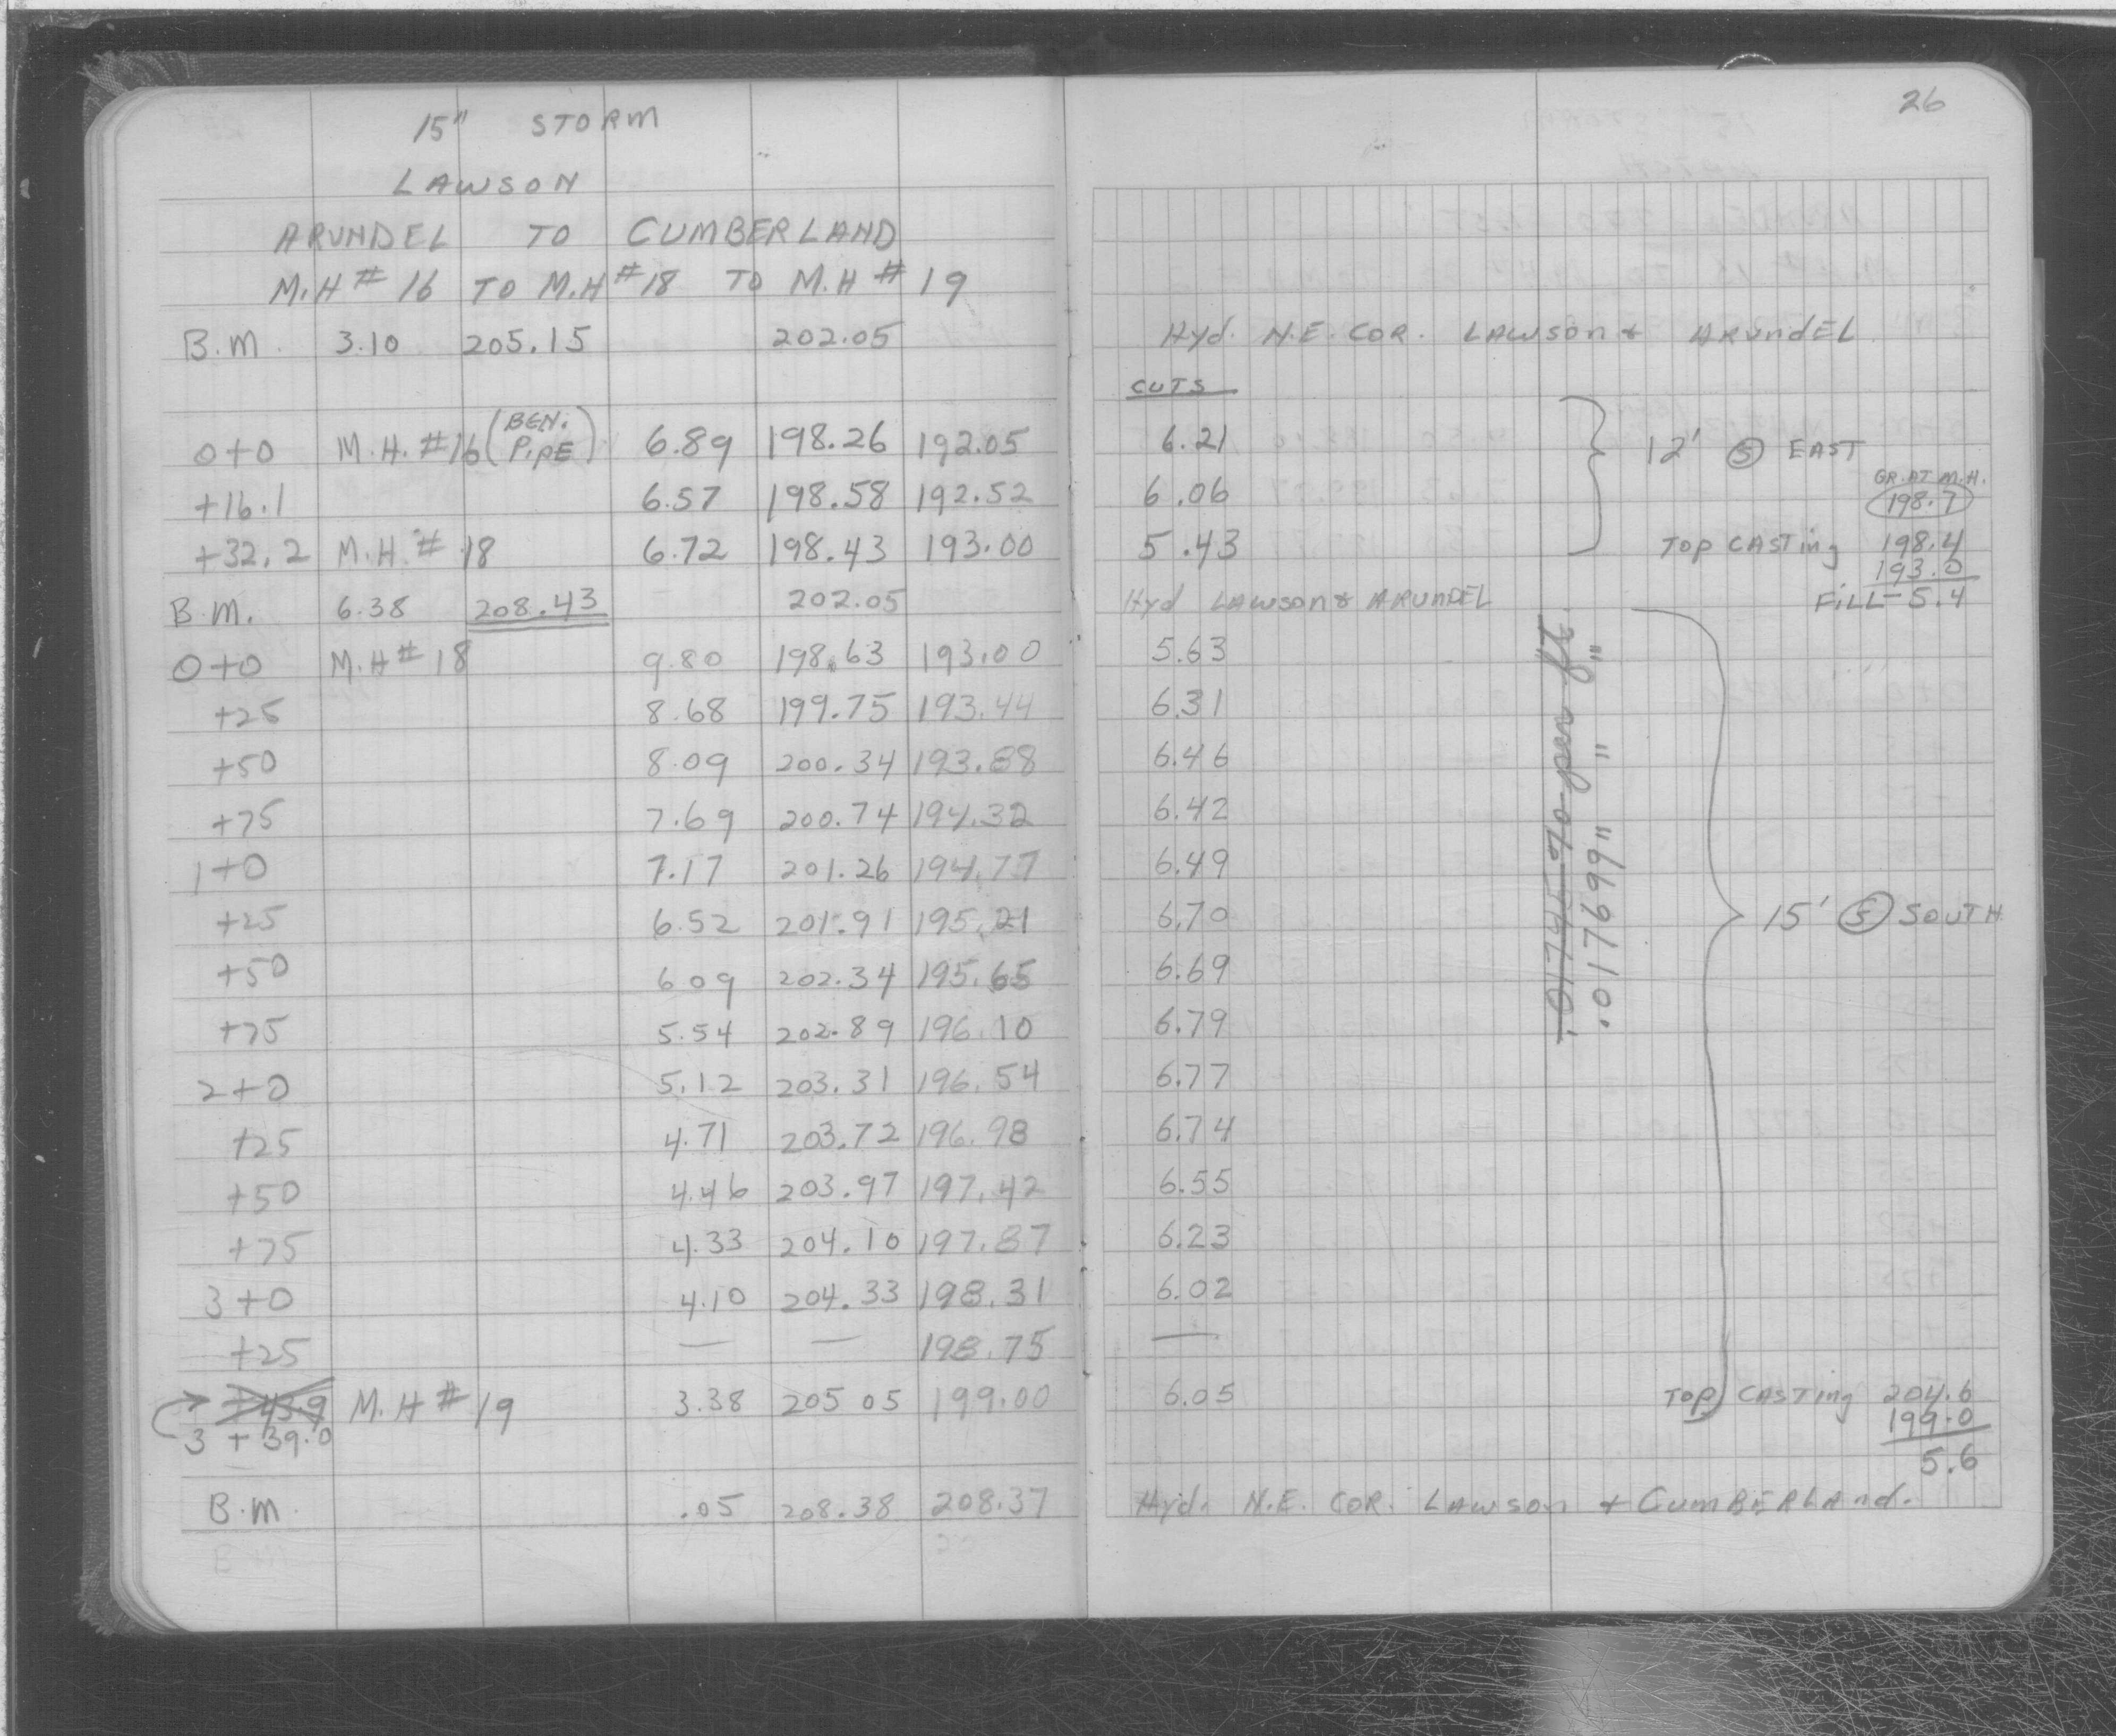 15" STORM
LAWSON
ARUNDEL TO CUMBERLAND
M.H # 16 TO M.H # 18 TO M.H # 19
B.M. 3.10 205.15 202.05
0+0 M.H. #16 (BEN. PIPE) 6.89 198.26 192.05
+16.1 6.57 198.58 192.52
+32.2 M.H. # 18 6.72 198.43 193.00
B.M. 6.38 208.43 202.05
0+0 M.H # 18 9.80 198.63 193.00
+25 8.68 199.75 193.44
+50 8.09 200.34 193.88
+75 7.69 200.74 194.32
1+0 7.17 201.26 194.77
+25 6.52 201.91 195.21
+50 6 09 202.34 195.65
+75 5.54 202.89 196.10
2+0 5.12 203.31 196.54
+25 4.71 203.72 196.98
+50 4.46 203.97 197.42
+75 4.33 204.10 197.87
3+0 4.10 204.33 198.31
+25 — — 198.75
+43.9 M.H # 19 3.38 205 05 199.00
3 + 39.0
B.M. .05 208.38 208.37
26
Hyd. N.E. COR. LAWSON & ARUNDEL
CUTS
6.21
12' S EAST
GR. AT M.H.
6.06
198.7
5.43
TOP CASTING 198.4
193.0
Hyd LAWSON & ARUNDEL
FILL - 5.4
5.63
6.31
6.46
6.42
6.49
6.70
15' S SOUTH
6.69
6.79
6.77
6.74
6.55
6.23
6.02
—
6.05
TOP CASTING 204.6
199.0
5.6
Hyd. N.E. COR. LAWSON & CUMBERLAND.
.017699 " " "